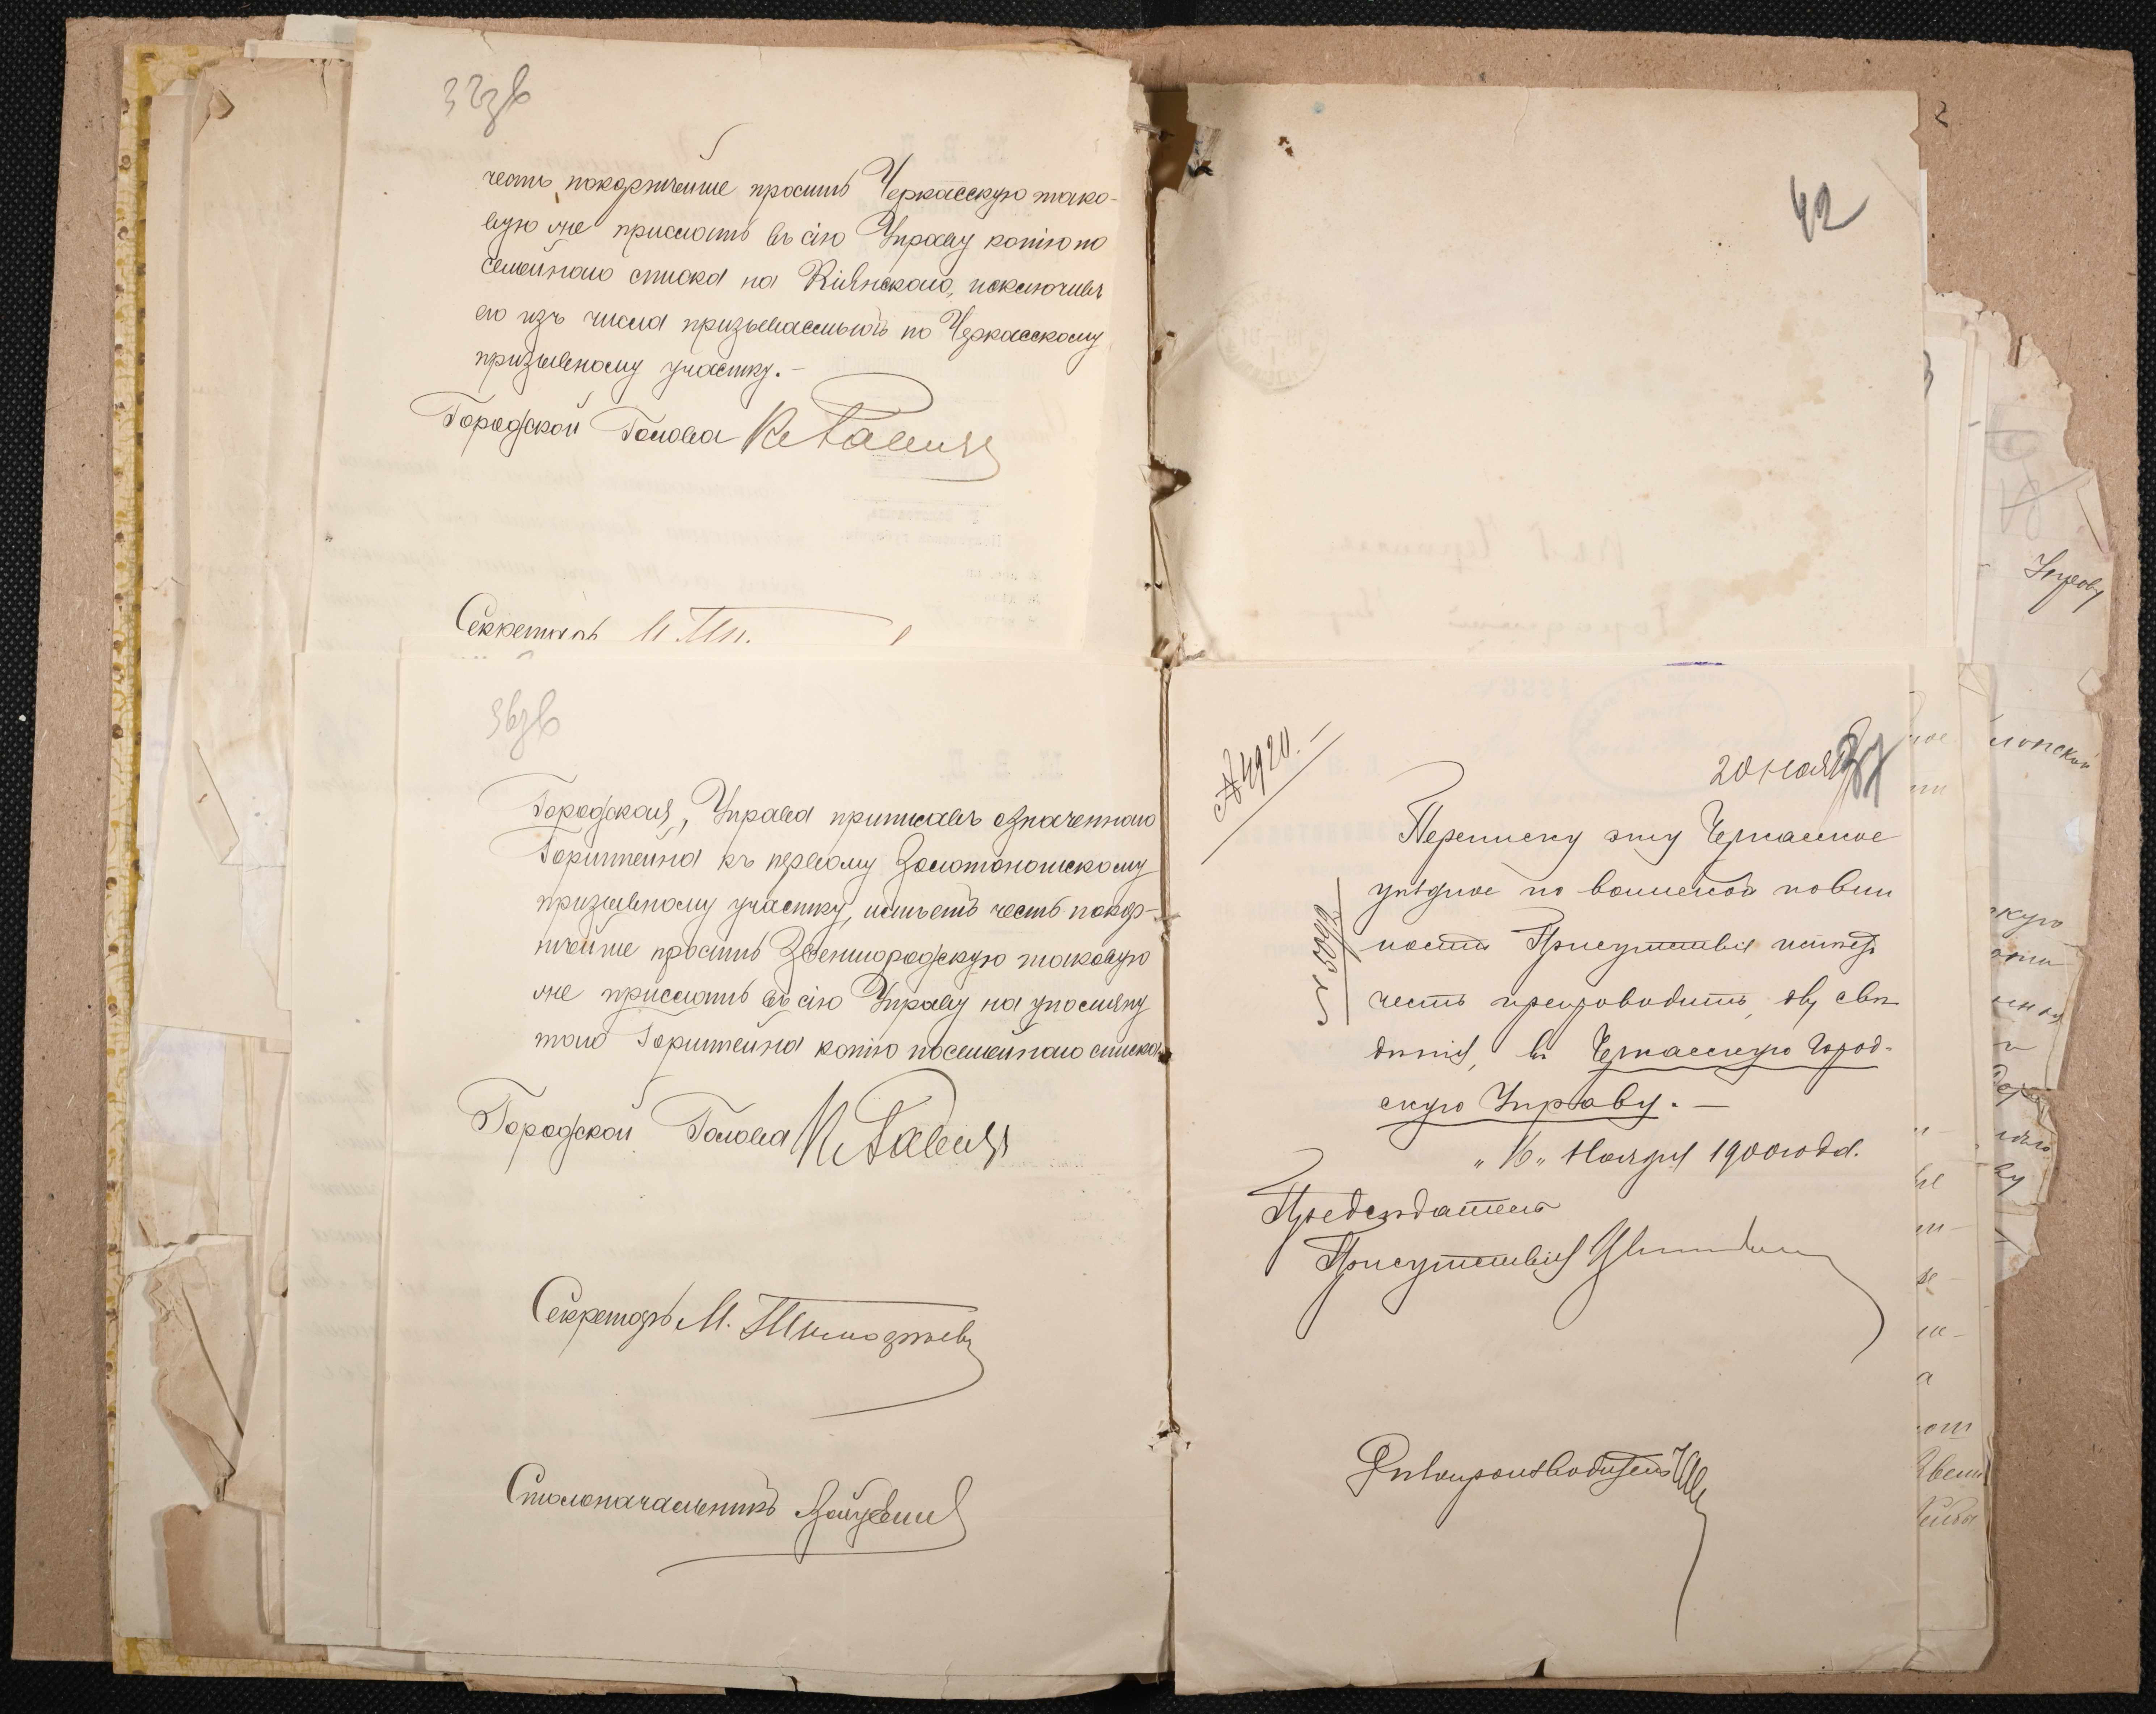 32зв
честь покорнѣйше просить Черкасскую тако-
вую же прислать въ сію Управу копію по
семейнаго списка на Кіянскаго, исключивъ
его изъ числа призываемыхъ по Черкасскому
призывному участку.-
Городской Голова
Секретарь
36зв
Городская, Управа приписавъ означеннаго
Горштейна къ первому Золотоношскому
призывному участку, имѣетъ честь покор-
нѣйше просить Звенигородскую таковую
же прислать въ сію Управу на упомяну
таго Горштейна копію посемейнаго списка.
Городской Голова
Секретарь М. Тимофѣевъ
Столоначальникъ
42
№ 4920.-
20 нояб
37
№ 5092
Переписку эту Черкасское
уѣздное по воинской повин
ности Присутствіе имѣетъ
честь препроводить, объ свѣ
дѣнія, въ Черкасскую Город-
скую Управу.-
"16" Ноября 1900 года.
Предсѣдатель
Присутствія
Дѣлопроизводитель
Управу